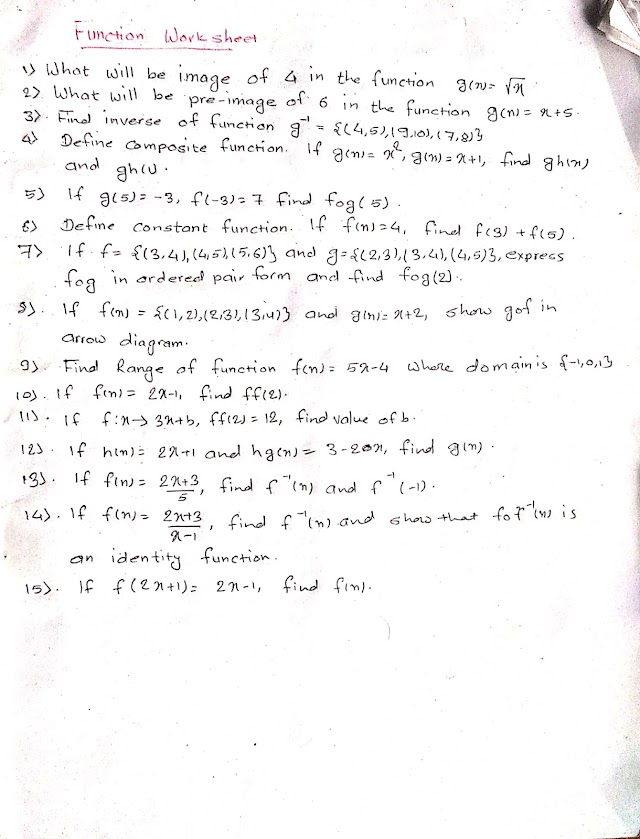 Function Work sheet
1) What will be image of 4 in the function g(x)= √x
2) What will be pre-image of 6 in the function g(x)= x+5.
3). Find inverse of function g⁻¹ = {(4,5),(9,10),(7,8)}
4) Define Composite function. If g(x)= x², g(x)= x+1, find gh(x)
and gh(1).
5) If g(5)= -3, f(-3)= 7 find fog(5).
6) Define constant function. If f(x)=4, find f(3) + f(5).
7) If f= {(3,4),(4,5),(5,6)} and g={(2,3),(3,4),(4,5)}, express
fog in ordered pair form and find fog(2).
8). If f(x) = {(1,2),(2,3),(3,4)} and g(x)= x+2, show gof in
arrow diagram.
9). Find Range of function f(x)= 5x-4 where domain is {-1,0,1}
10). If f(x)= 2x-1, find ff(2).
11). If f:x→ 3x+b, ff(2)= 12, find value of b.
12). If h(x)= 2x+1 and hg(x)= 3-20x, find g(x).
13). If f(x)= 2x+3/5, find f⁻¹(x) and f⁻¹(-1).
14). If f(x)= 2x+3/x-1, find f⁻¹(x) and show that fof⁻¹(x) is
an identity function.
15). If f(2x+1)= 2x-1, find f(x).